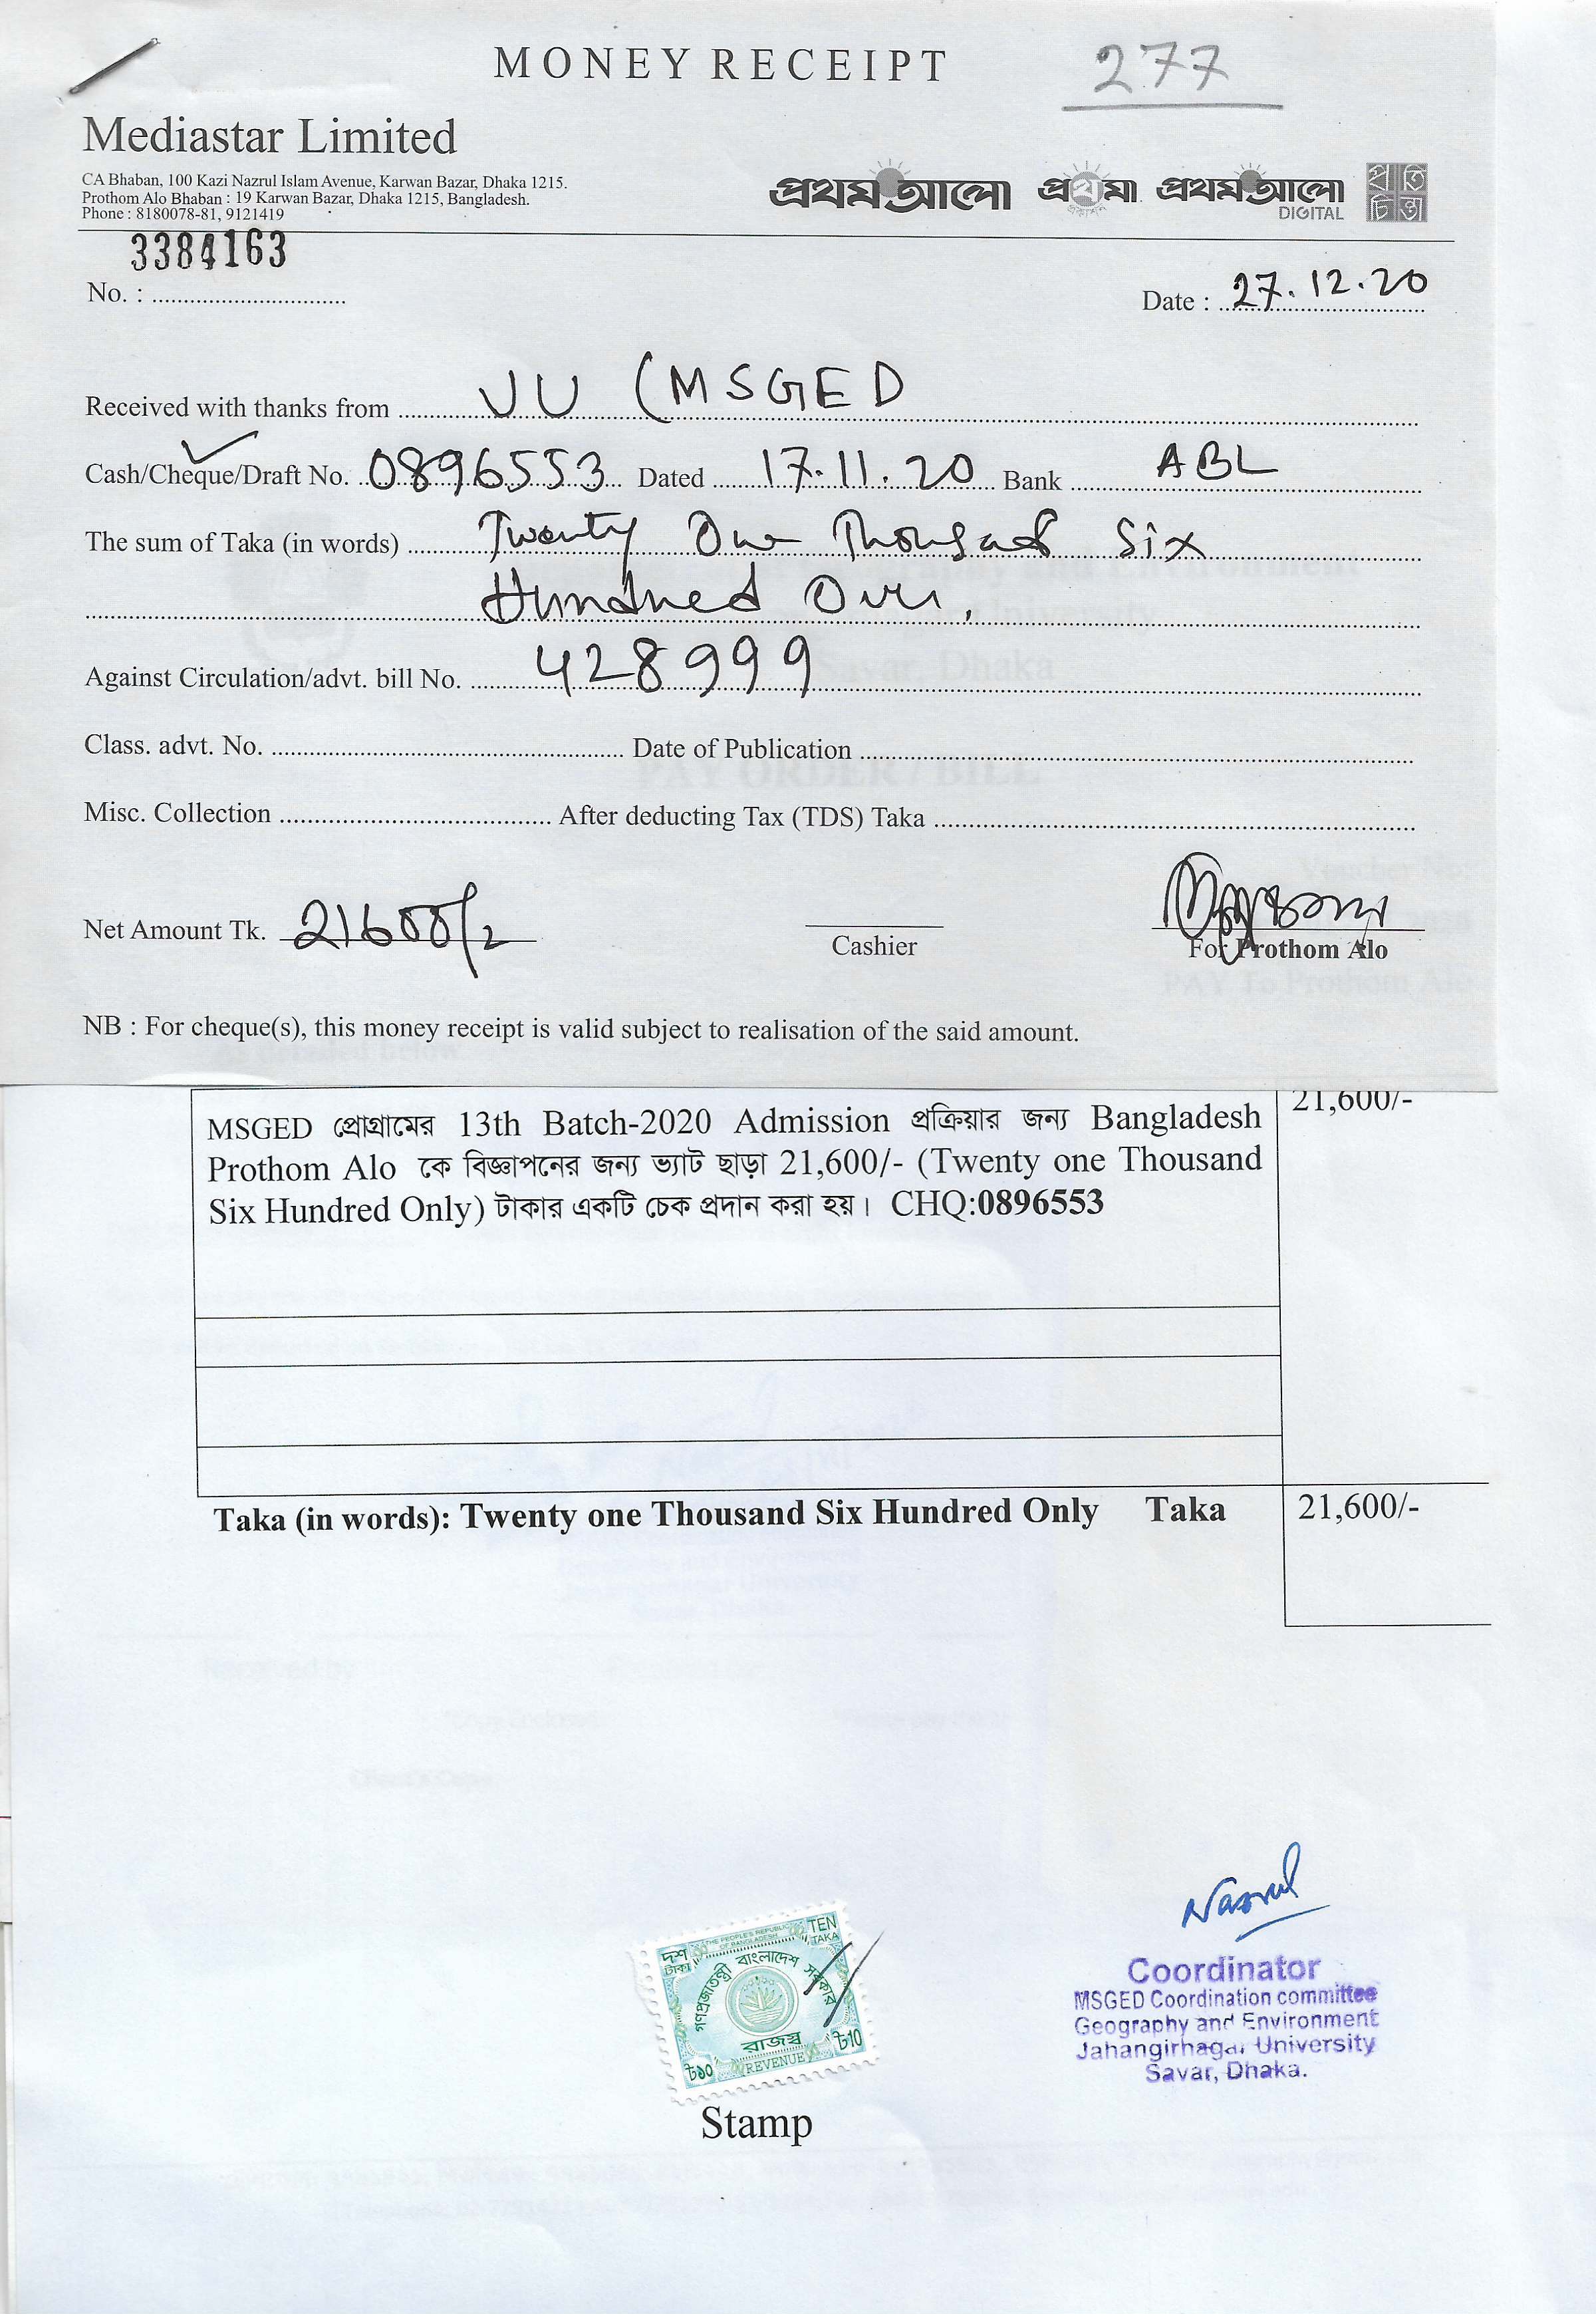 MONEY RECEIPT
277
Mediastar Limited
CA Bhaban, 100 Kazi Nazrul Islam Avenue, Karwan Bazar, Dhaka 1215.
Prothom Alo Bhaban : 19 Karwan Bazar, Dhaka 1215, Bangladesh.
Phone : 8180078-81, 9121419
প্রথম আলো প্রথমা প্রকাশন প্রথম আলো DIGITAL প্রতিচিন্তা
3384163
No. : ..............................
Date : 27.12.20
Received with thanks from JU (MSGED
Cash/Cheque/Draft No. 0896553 Dated 17.11.20 Bank ABL
The sum of Taka (in words) Twenty One Thousand Six
Hundred Only.
Against Circulation/advt. bill No. 428999
Class. advt. No. .............................. Date of Publication ..............................
Misc. Collection .............................. After deducting Tax (TDS) Taka ..............................
Net Amount Tk. 21600/=
Cashier
For Prothom Alo
NB : For cheque(s), this money receipt is valid subject to realisation of the said amount.
MSGED প্রোগ্রামের 13th Batch-2020 Admission প্রক্রিয়ার জন্য Bangladesh
21,600/-
Prothom Alo কে বিজ্ঞাপনের জন্য ভ্যাট ছাড়া 21,600/- (Twenty one Thousand
Six Hundred Only) টাকার একটি চেক প্রদান করা হয়। CHQ:0896553
Taka (in words): Twenty one Thousand Six Hundred Only Taka 21,600/-
দশ টাকা
THE PEOPLE'S REPUBLIC OF BANGLADESH
TEN TAKA
গণপ্রজাতন্ত্রী বাংলাদেশ সরকার
রাজস্ব
৳১০ REVENUE ৳10
Stamp
Nasrul
Coordinator
MSGED Coordination committee
Geography and Environment
Jahangirnagar University
Savar, Dhaka.